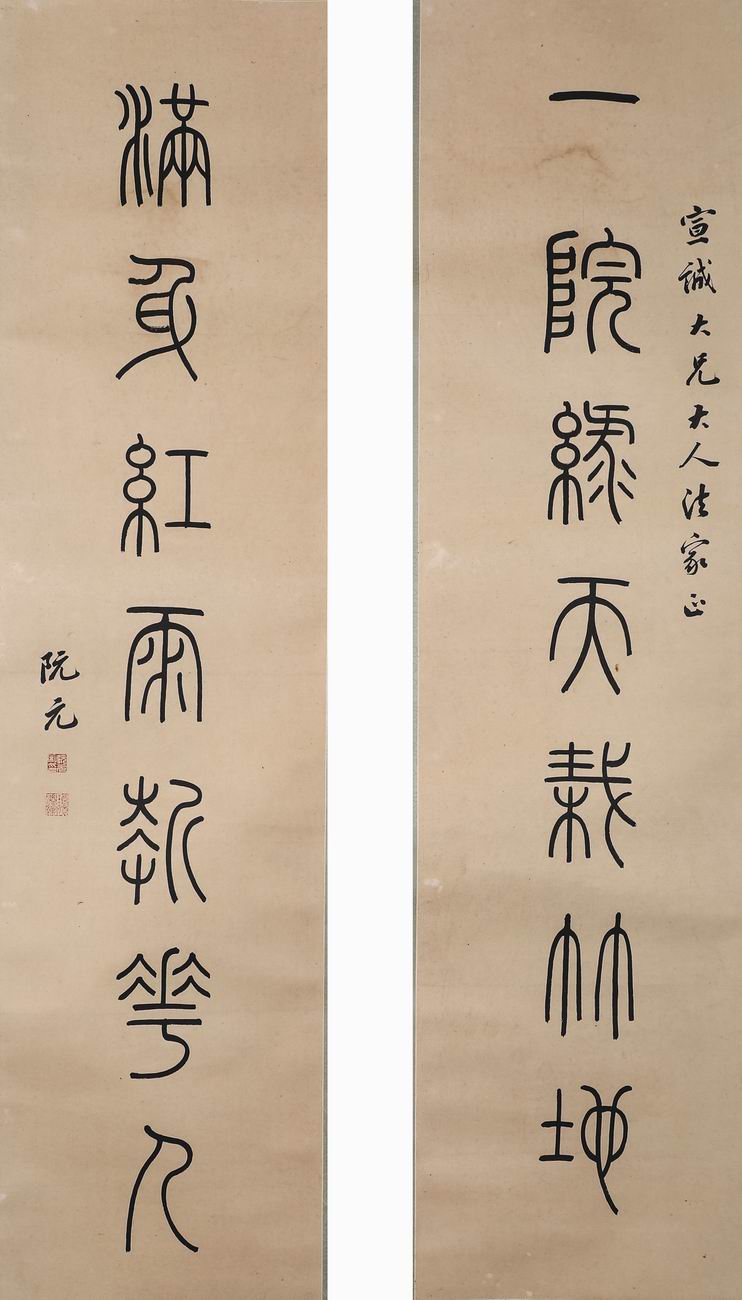 宣誠大兄大人法家正
一院綠天栽竹地
滿身紅雨埶華人
阮元